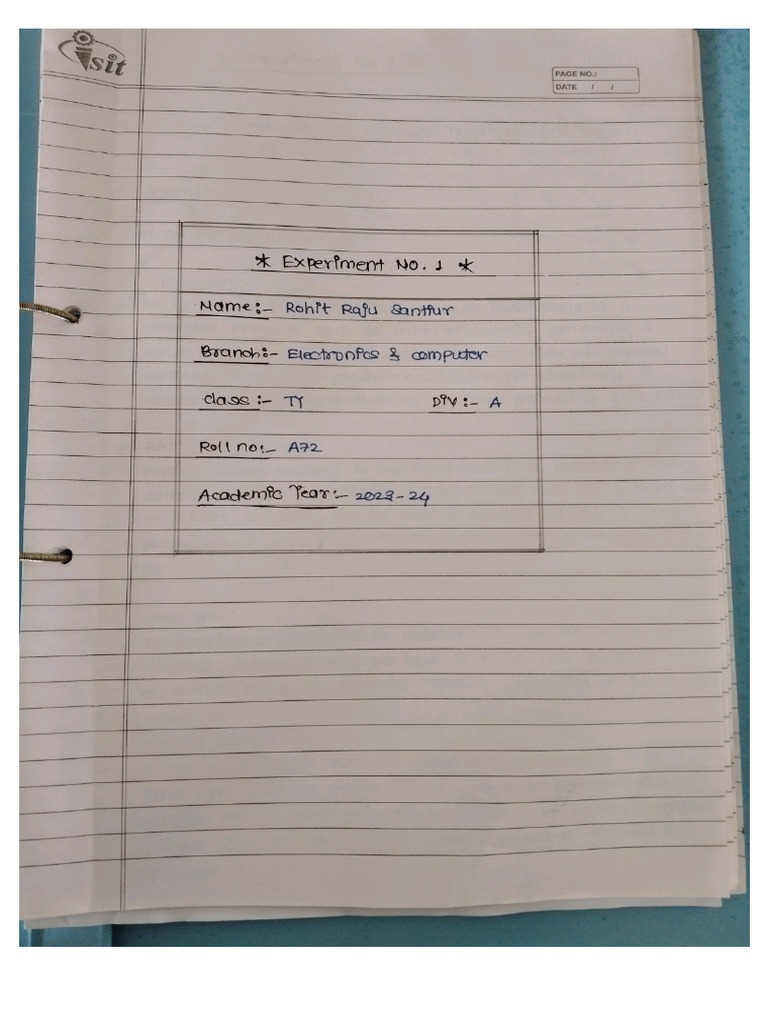 isit
PAGE NO.:
DATE / /
* Experiment No. 1 *
Name:- Rohit Raju Santiur
Branch:- Electronics & computer
class:- TY Div:- A
Roll no:- A72
Academic Year:- 2023-24